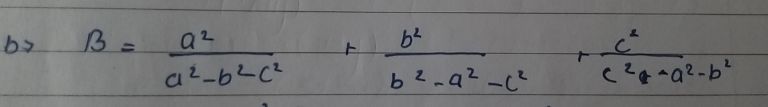 b> B = a²/(a²-b²-c²) + b²/(b²-a²-c²) + c²/(c²-a²-b²)